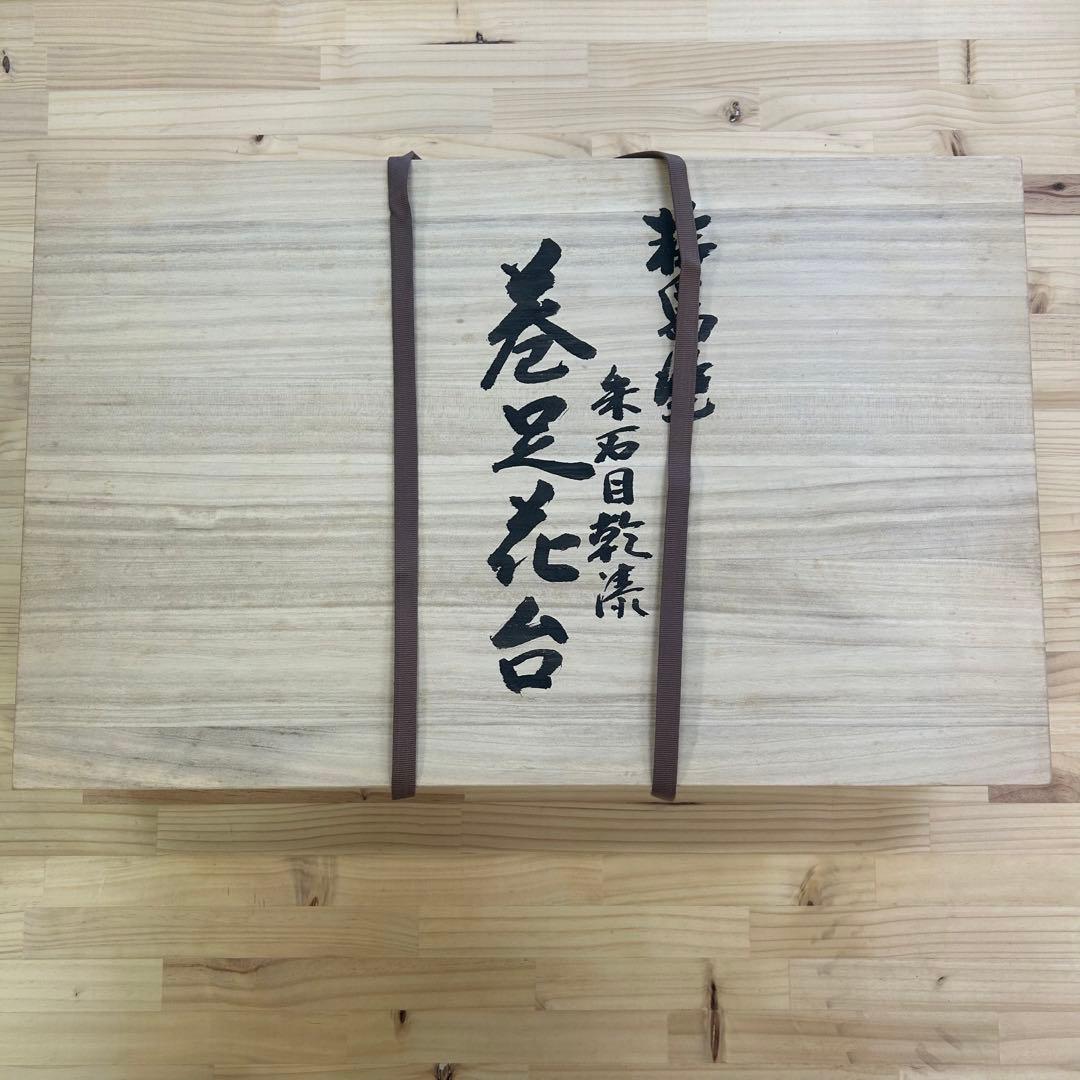 輪島塗
朱石目乾漆
巻足花台